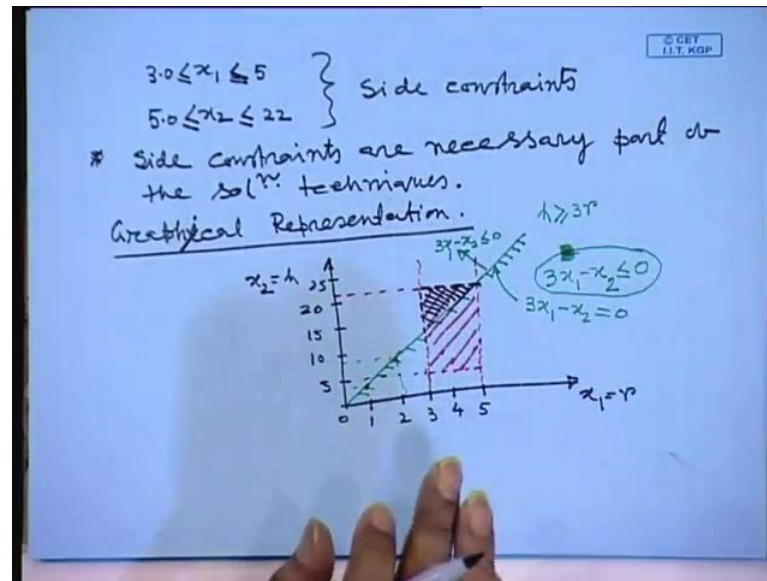 © CET
I.I.T. KGP
3.0 ≤ x₁ ≤ 5
5.0 ≤ x₂ ≤ 22
} Side constraints
* Side constraints are necessary part of
the solⁿ. techniques.
Graphical Representation.
3x₁-x₂≤0
h ≥ 3r
3x₁-x₂ ≤ 0
3x₁-x₂ = 0
x₂ = h
25
20
15
10
5
0 1 2 3 4 5
x₁ = r